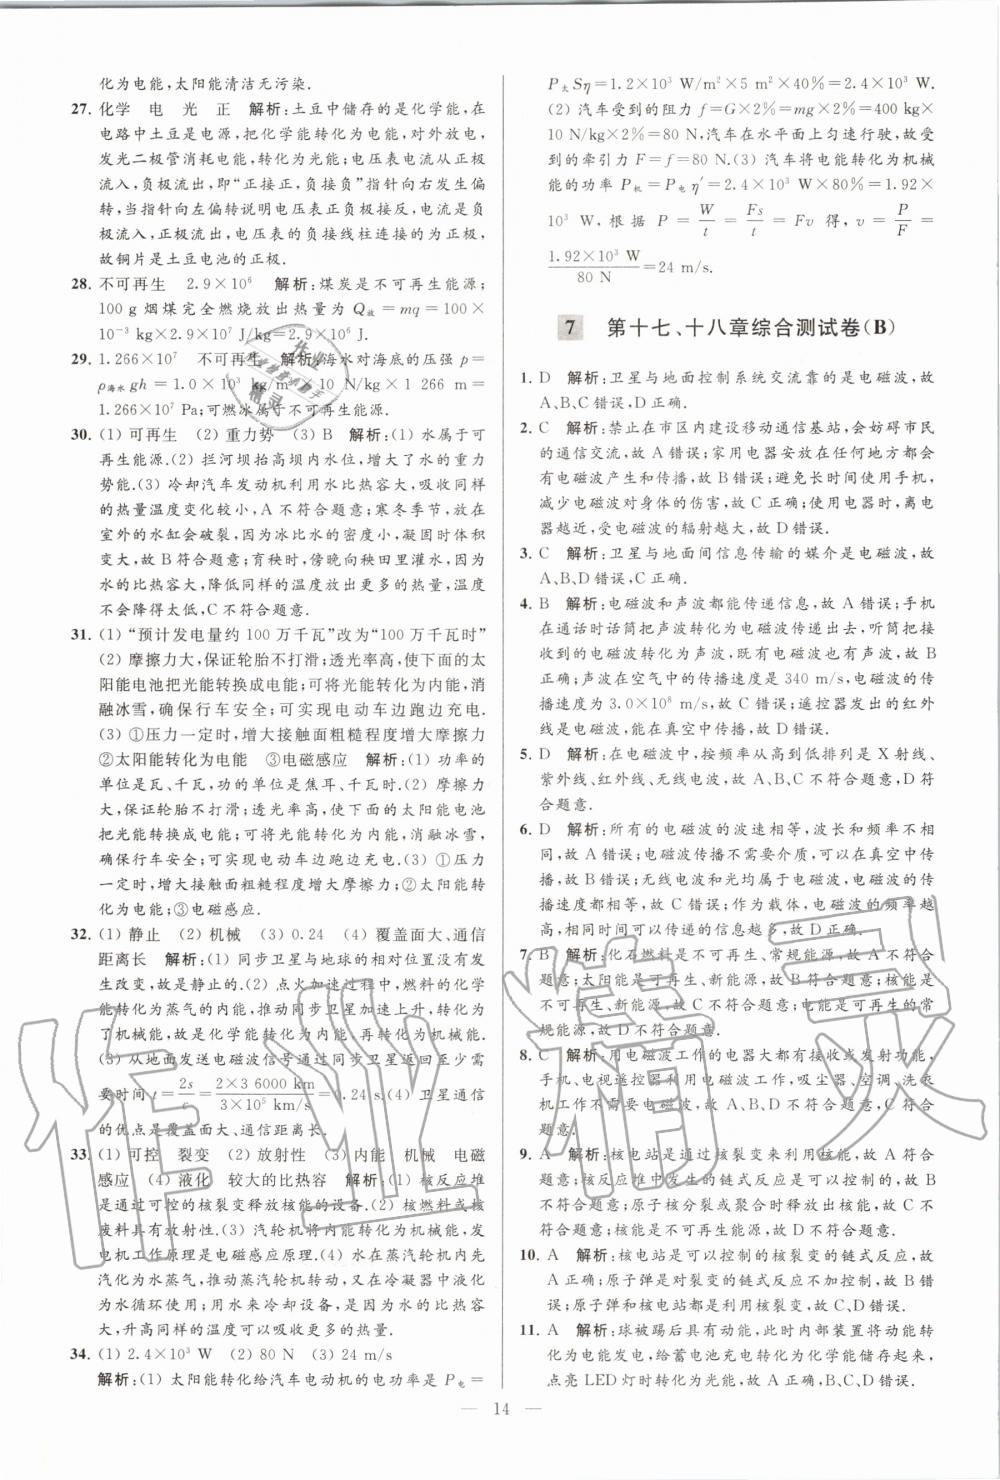 化为电能,太阳能清洁无污染.
27. 化学 电 光 正 解析:土豆中储存的是化学能,在
电路中土豆是电源,把化学能转化为电能,对外放电,
发光二极管消耗电能,转化为光能;电压表电流从正极
流入,负极流出,即“正接正,负接负”指针向右发生偏
转,当指针向左偏转说明电压表正负极接反,电流是负
极流入,正极流出,电压表的负接线柱连接的为正极,
故铜片是土豆电池的正极.
28. 不可再生 2.9×10⁶ 解析:煤炭是不可再生能源;
100 g 烟煤完全燃烧放出热量为 Q放=mq=100×
10⁻³ kg×2.9×10⁷ J/kg=2.9×10⁶ J.
29. 1.266×10⁷ 不可再生 解析:海水对海底的压强 p=
ρ海水 gh=1.0×10³ kg/m³×10 N/kg×1 266 m=
1.266×10⁷ Pa;可燃冰属于不可再生能源.
30. (1) 可再生 (2) 重力势 (3) B 解析:(1) 水属于可
再生能源.(2) 拦河坝抬高坝内水位,增大了水的重力
势能.(3) 冷却汽车发动机利用水比热容大,吸收同样
的热量温度变化较小,A 不符合题意;寒冬季节,放在
室外的水缸会破裂,因为冰比水的密度小,凝固时体积
变大,故 B 符合题意;育秧时,傍晚向秧田里灌水,因为
水的比热容大,降低同样的温度放出更多的热量,温度
不会降得太低,C 不符合题意.
31. (1) “预计发电量约 100 万千瓦”改为“100 万千瓦时”
(2) 摩擦力大,保证轮胎不打滑;透光率高,使下面的太
阳能电池把光能转换成电能;可将光能转化为内能,消
融冰雪,确保行车安全;可实现电动车边跑边充电.
(3) ①压力一定时,增大接触面粗糙程度增大摩擦力
②太阳能转化为电能 ③电磁感应 解析:(1) 功率的
单位是瓦、千瓦,功的单位是焦耳、千瓦时.(2) 摩擦力
大,保证轮胎不打滑;透光率高,使下面的太阳能电池
把光能转换成电能;可将光能转化为内能,消融冰雪,
确保行车安全;可实现电动车边跑边充电.(3) ①压力
一定时,增大接触面粗糙程度增大摩擦力;②太阳能转
化为电能;③电磁感应.
32. (1) 静止 (2) 机械 (3) 0.24 (4) 覆盖面大、通信
距离长 解析:(1) 同步卫星与地球的相对位置没有发
生改变,故是静止的.(2) 点火加速过程中,燃料的化学
能转化为蒸气的内能,推动同步卫星加速上升,转化为
了机械能,故是化学能转化为内能,再转化为机械能.
(3) 从地面发送电磁波信号通过同步卫星返回至少需
要时间 t=2s/c=2×3 6000 km/3×10⁵ km/s=0.24 s.(4) 卫星通信
的优点是覆盖面大、通信距离长.
33. (1) 可控 裂变 (2) 放射性 (3) 内能 机械 电磁
感应 (4) 液化 较大的比热容 解析:(1) 核反应堆
是通过可控的核裂变释放核能的设备.(2) 核燃料或核
废料具有放射性.(3) 汽轮机将内能转化为机械能,发
电机工作原理是电磁感应原理.(4) 水在蒸汽轮机内先
汽化为水蒸气,推动蒸汽轮机转动,又在冷凝器中液化
为水循环使用;用水来冷却设备,是因为水的比热容
大,升高同样的温度可以吸收更多的热量.
34. (1) 2.4×10³ W (2) 80 N (3) 24 m/s
解析:(1) 太阳能转化给汽车电动机的电功率是 P电=
P太 Sη=1.2×10³ W/m²×5 m²×40%=2.4×10³ W.
(2) 汽车受到的阻力 f=G×2%=mg×2%=400 kg×
10 N/kg×2%=80 N,汽车在水平面上匀速行驶,故受
到的牵引力 F=f=80 N.(3) 汽车将电能转化为机械
能的功率 P机=P电 η′=2.4×10³ W×80%=1.92×
10³ W,根据 P=W/t=Fs/t=Fv 得,v=P/F=
1.92×10³ W/80 N=24 m/s.
7 第十七、十八章综合测试卷(B)
1. D 解析:卫星与地面控制系统交流靠的是电磁波,故
A、B、C 错误,D 正确.
2. C 解析:禁止在市区内建设移动通信基站,会妨碍市民
的通信交流,故 A 错误;家用电器安放在任何地方都
有电磁波,故 B 错误;避免长时间使用手机,
减少电磁波对身体的伤害,故 C 正确;使用电器时,离电
器越近,受电磁波的辐射越大,故 D 错误.
3. C 解析:卫星与地面间信息传输的媒介是电磁波,故
A、B、D 错误,C 正确.
4. B 解析:电磁波和声波都能传递信息,故 A 错误;手机
在通话时话筒把声波转化为电磁波传递出去,听筒把接
收到的电磁波转化为声波,既有电磁波也有声波,故 B
正确;声波在空气中的传播速度是 340 m/s,电磁波传播
速度为 3.0×10⁸ m/s,故 C 错误;遥控器发出的红外
线是电磁波,能在真空中传播,故 D 错误.
5. D 解析:在电磁波中,按频率从高到低排列是 X 射线、
紫外线、红外线、无线电波,故 A、B、C 不符合题意,D 符
合题意.
6. D 解析:所有的电磁波的波速相等,波长和频率不相
同,故 A 错误;电磁波的传播不需要介质,可以在真空中传
播,故 B 错误;无线电波和光均属于电磁波,电磁波的传
播速度都相等,故 C 错误;作为载体,电磁波的频率越
高,相同时间可以传递的信息越多,故 D 正确.
7. B 解析:化石燃料是不可再生、常规能源,故 A 不符合
题意;太阳能是可再生、新能源,故 B 符合题意;核能是
不可再生、新能源,故 C 不符合题意;电能是可再生的常
规能源,故 D 不符合题意.
8. C 解析:用电磁波工作的电器大都有接收或发射功能,
手机、电视遥控器利用电磁波工作,吸尘器、空调、洗衣
机工作时不需要电磁波,故 A、B、D 不符合题意,C 符合
题意.
9. A 解析:核电站是通过核裂变来利用核能,故 A 符合
题意;核反应堆中发生的链式反应是可以控制的,故 B
不符合题意;原子核分裂或聚合时释放的能量是核能,
故 C 不符合题意;核能是不可再生能源,故 D 不符合
题意.
10. A 解析:核电站是可以控制的核裂变的链式反应,故
A 正确;原子弹是对裂变的链式反应不加控制,故 B 错
误;原子弹和核电站都是核裂变,故 C、D 错误.
11. A 解析:球被踢后具有动能,此时内部装置将动能转
化为电能,给蓄电池充电转化为化学能储存起来,
点亮 LED 灯时转化为光能,故 A 正确,B、C、D 错误.
14
作业精灵